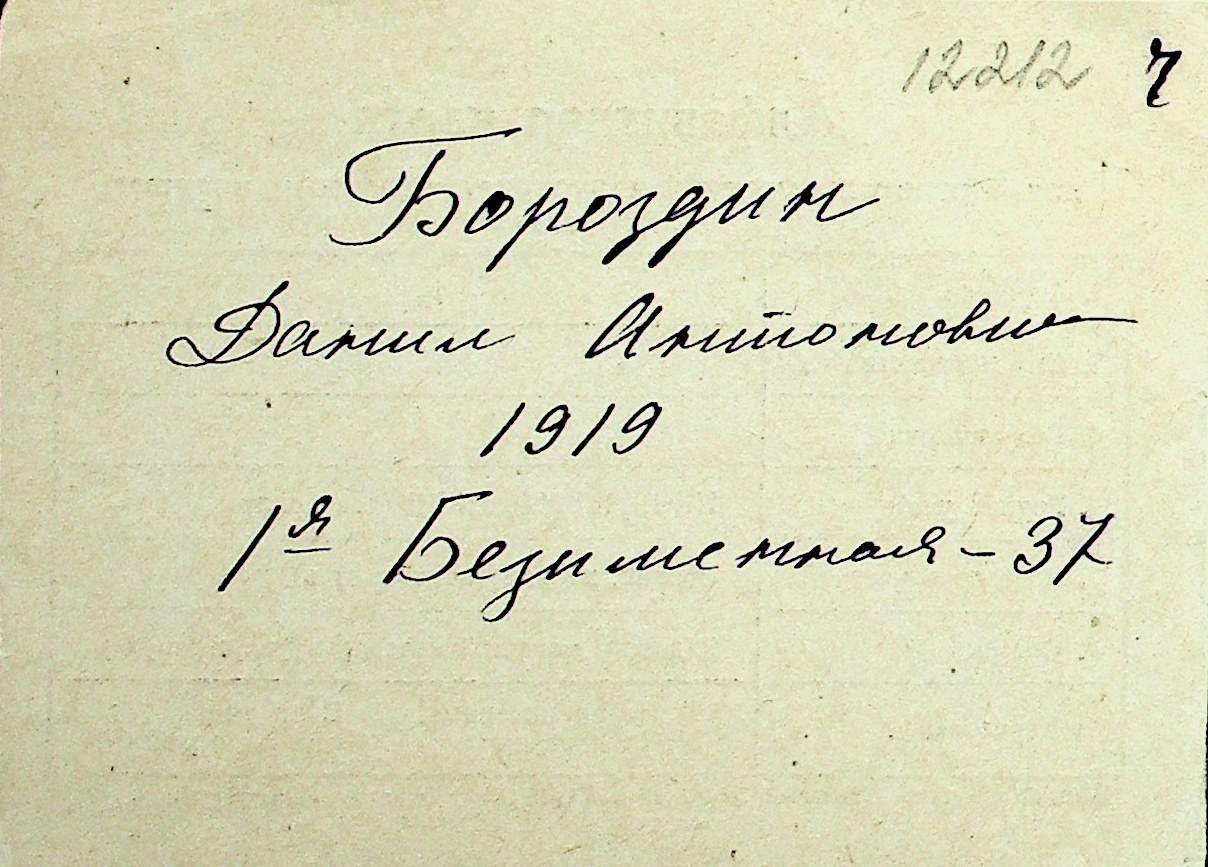 12212 7
Бороздин
Данил Антонович
1919
1я Безименная - 37